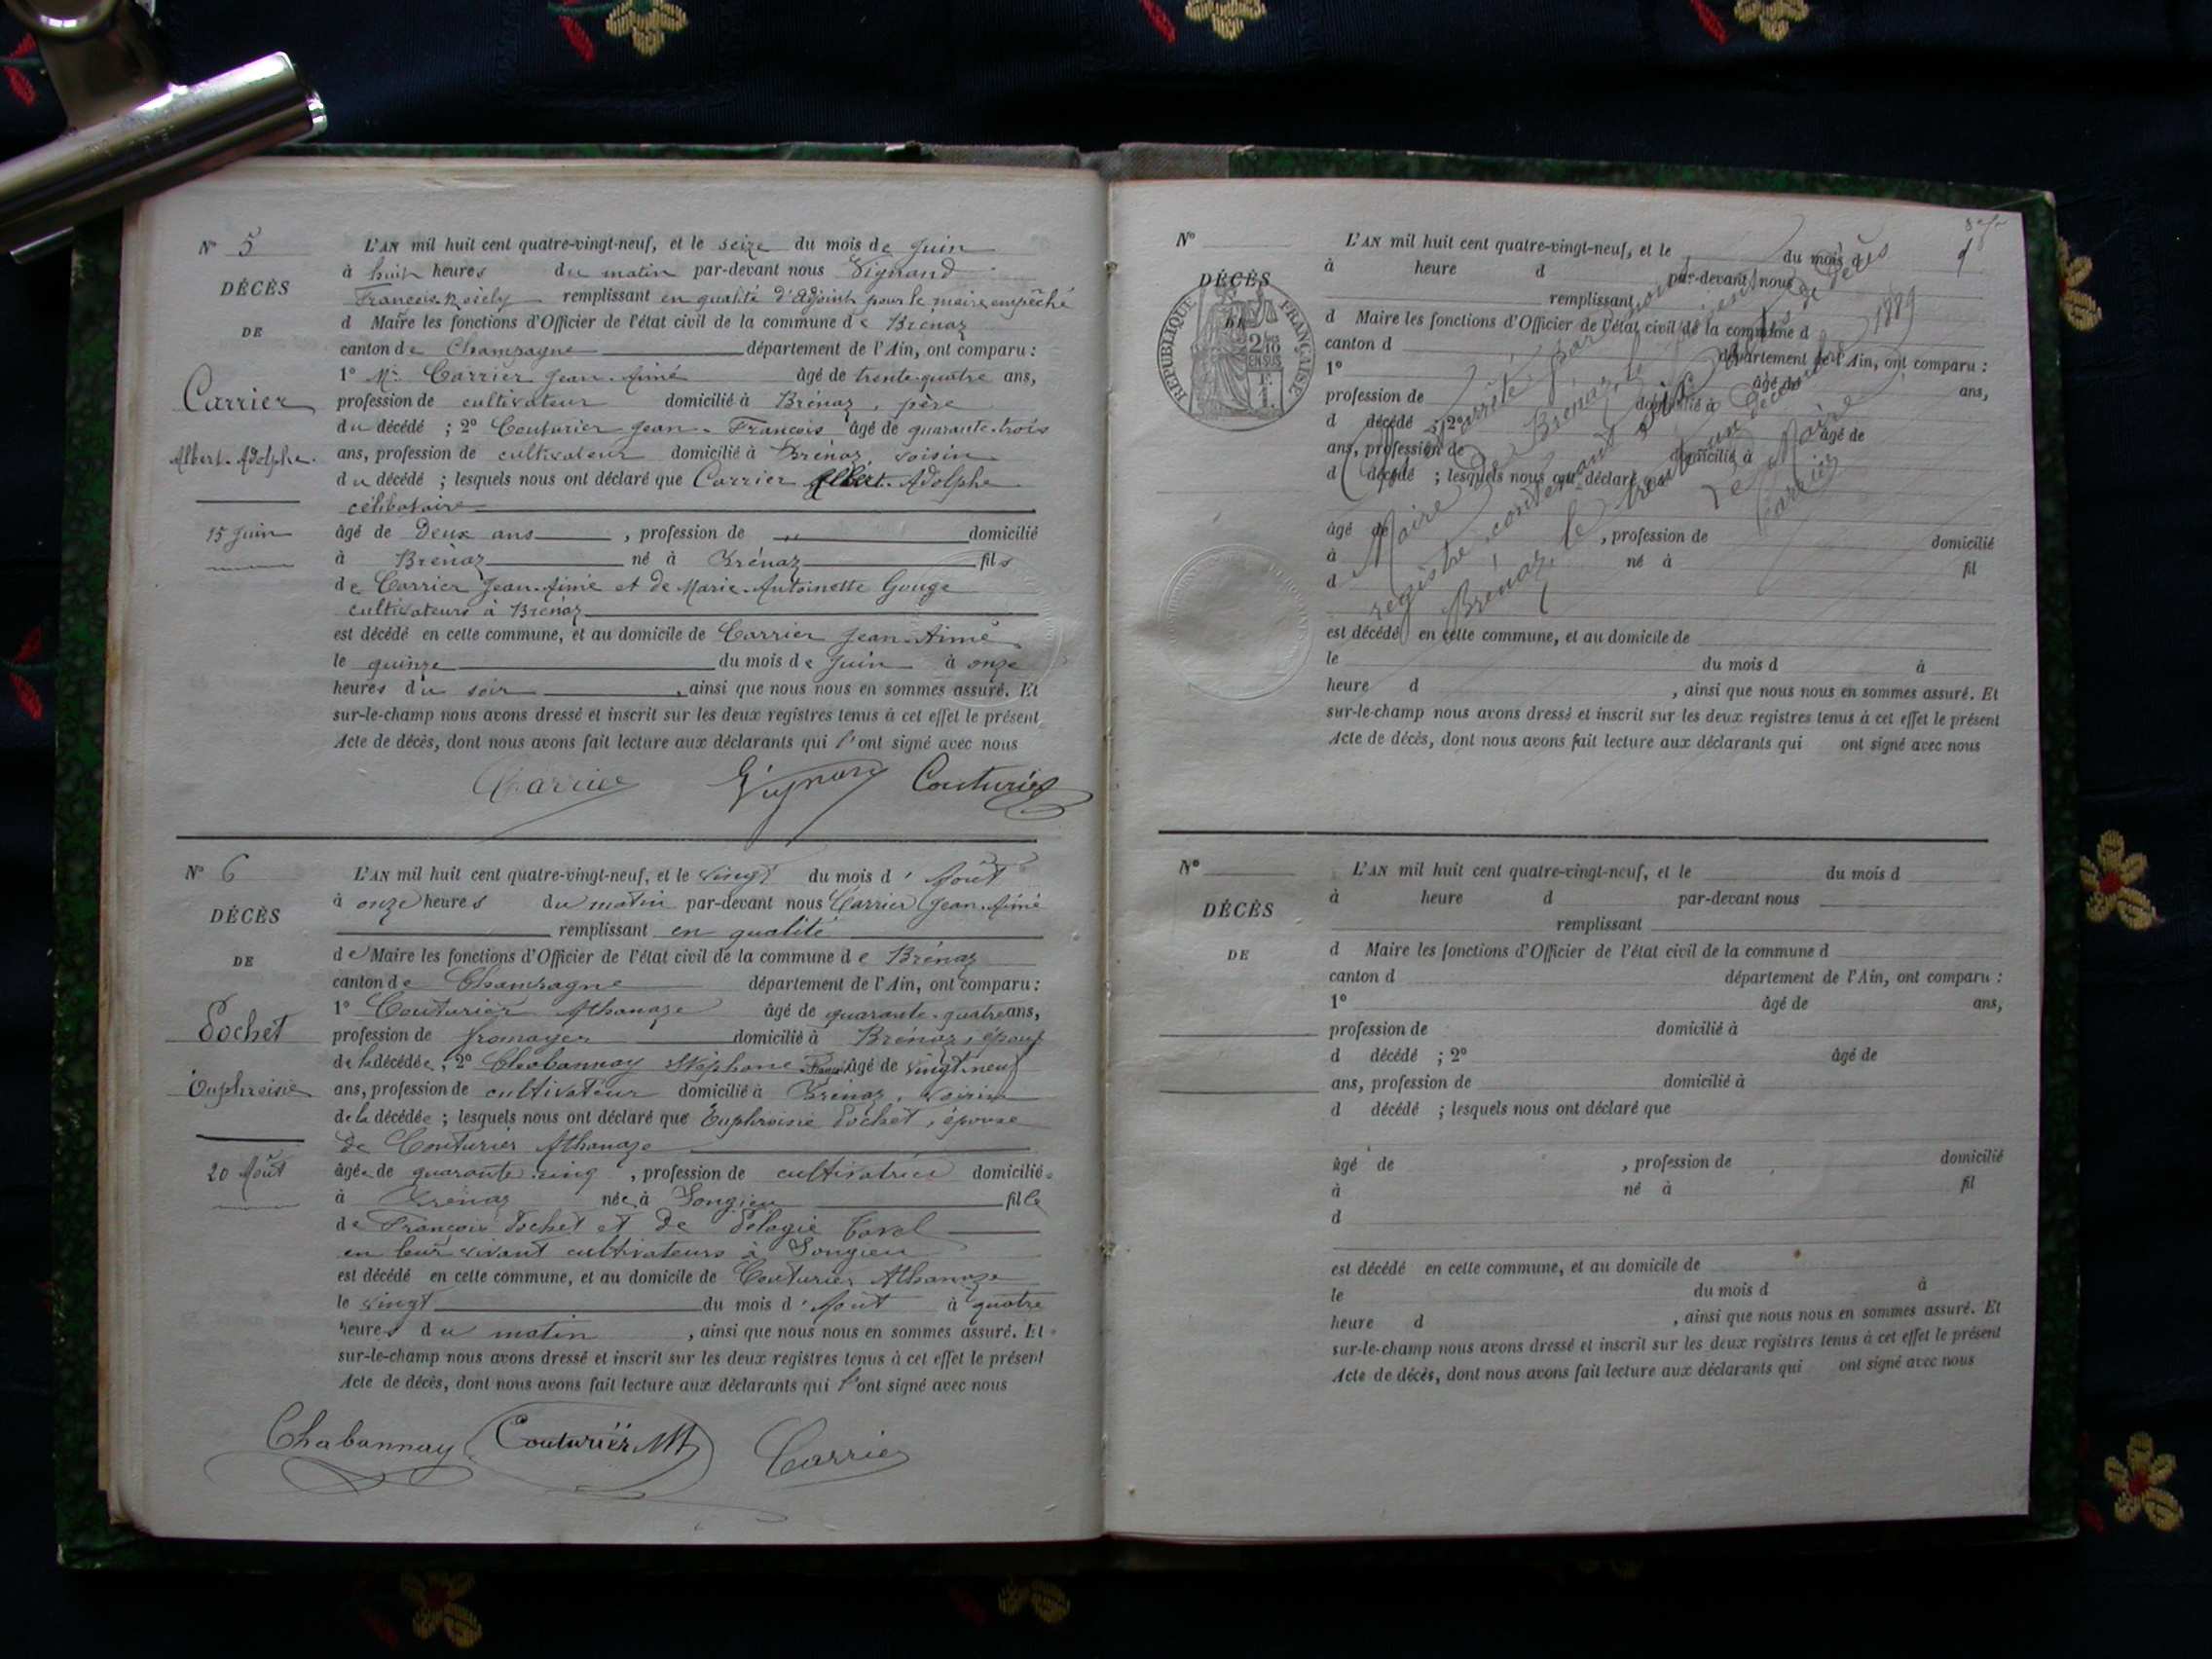 N° 5
DÉCÈS
DE
Carrier
Albert-Adolphe.
15 Juin
L'AN mil huit cent quatre-vingt-neuf, et le seize du mois de Juin
à huit heures du matin par-devant nous Vignand
remplissant en qualité d'Adjoint pour le maire empêché
d Maire les fonctions d'Officier de l'état civil de la commune de Brénaz
canton de Champagne département de l'Ain, ont comparu :
1° Mr Carrier Jean-Aimé âgé de trente-quatre ans,
profession de cultivateur domicilié à Brénaz, père
du décédé ; 2° Couturier Jean-François âgé de quarante-trois
ans, profession de cultivateur domicilié à Brénaz, voisin
du décédé ; lesquels nous ont déclaré que Carrier Albert-Adolphe
célibataire
âgé de Deux ans, profession de " domicilié
à Brénaz né à Brénaz fils
de Carrier Jean-Aimé et de Marie-Antoinette Gouge
cultivateurs à Brénaz
est décédé en cette commune, et au domicile de Carrier Jean-Aimé
le quinze du mois de Juin à onze
heures du soir, ainsi que nous nous en sommes assuré. Et
sur-le-champ nous avons dressé et inscrit sur les deux registres tenus à cet effet le présent
Acte de décès, dont nous avons fait lecture aux déclarants qui l'ont signé avec nous
Carrier Vignand Couturier
N° 6
DÉCÈS
DE
Pochet
Euphroisie
20 Août
L'AN mil huit cent quatre-vingt-neuf, et le vingt du mois d'Août
à onze heures du matin par-devant nous Carrier Jean-Aimé
remplissant en qualité
de Maire les fonctions d'Officier de l'état civil de la commune de Brénaz
canton de Champagne département de l'Ain, ont comparu :
1° Couturier Athanaze âgé de quarante-quatre ans,
profession de fromager domicilié à Brénaz, époux
de la décédée ; 2° Chabannay Stéphane âgé de vingt-neuf
ans, profession de cultivateur domicilié à Brénaz, voisin
de la décédée ; lesquels nous ont déclaré que Euphroisie Pochet, épouse
de Couturier Athanaze
âgée de quarante-cinq, profession de cultivatrice domiciliée
à Brénaz née à Songieu fille
de François Pochet et de Pélagie
en leur vivant cultivateurs à Songieu
est décédé en cette commune, et au domicile de Couturier Athanaze
le vingt du mois d'Août à quatre
heures du matin, ainsi que nous nous en sommes assuré. Et
sur-le-champ nous avons dressé et inscrit sur les deux registres tenus à cet effet le présent
Acte de décès, dont nous avons fait lecture aux déclarants qui l'ont signé avec nous
Chabannay Couturier Carrier
N°
DÉCÈS
DE
RÉPUBLIQUE FRANÇAISE
2/10
EN SUS
L'AN mil huit cent quatre-vingt-neuf, et le du mois d
à heure d par-devant nous
remplissant
d Maire les fonctions d'Officier de l'état civil de la commune d
canton d département de l'Ain, ont comparu :
1° âgé de ans,
profession de domicilié à
d décédé ; 2° âgé de
ans, profession de domicilié à
d décédé ; lesquels nous ont déclaré que
âgé de , profession de domicilié
à né à fil
d
est décédé en cette commune, et au domicile de
le du mois d à
heure d , ainsi que nous nous en sommes assuré. Et
sur-le-champ nous avons dressé et inscrit sur les deux registres tenus à cet effet le présent
Acte de décès, dont nous avons fait lecture aux déclarants qui ont signé avec nous
arrêté par nous
Maire de Brénaz, le présent
registre contenant six actes de Décès
Brénaz, le trente un Décembre 1889
Le Maire
Carrier
N°
DÉCÈS
DE
L'AN mil huit cent quatre-vingt-neuf, et le du mois d
à heure d par-devant nous
remplissant
d Maire les fonctions d'Officier de l'état civil de la commune d
canton d département de l'Ain, ont comparu :
1° âgé de ans,
profession de domicilié à
d décédé ; 2° âgé de
ans, profession de domicilié à
d décédé ; lesquels nous ont déclaré que
âgé de , profession de domicilié
à né à fil
d
est décédé en cette commune, et au domicile de
le du mois d à
heure d , ainsi que nous nous en sommes assuré. Et
sur-le-champ nous avons dressé et inscrit sur les deux registres tenus à cet effet le présent
Acte de décès, dont nous avons fait lecture aux déclarants qui ont signé avec nous